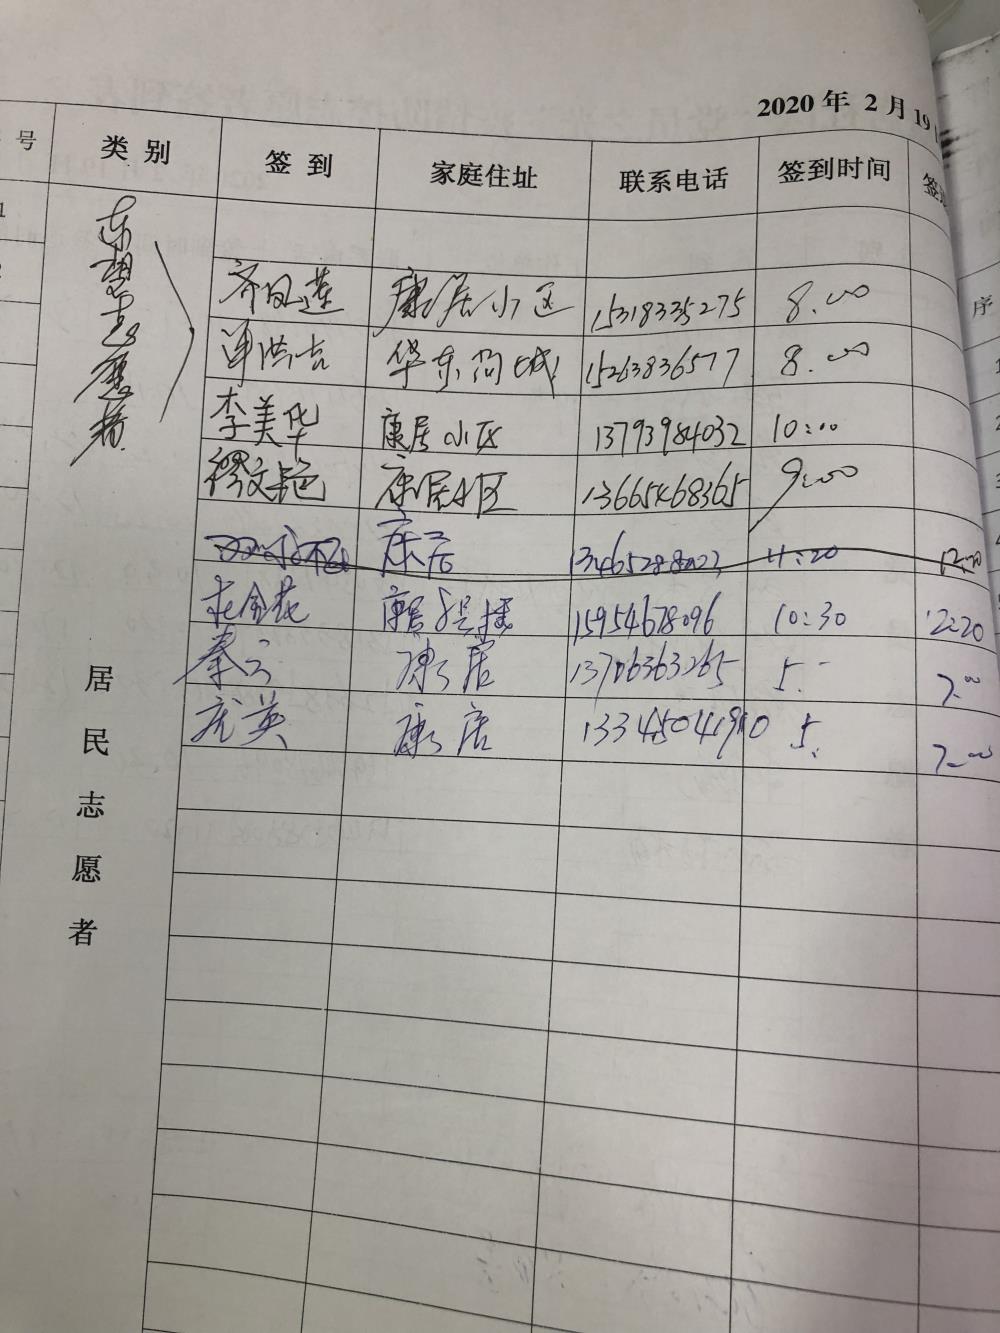 2020 年 2 月 19
号 类 别 签 到 家庭住址 联系电话 签到时间 签
志愿者
齐凤莲 康居小区 15318335275 8:00
单洪吉 华东尚城 15263836577 8:00
李美华 康居小区 13793984032 10:00
缪文艳 康居小区 13665468365 9:00
康居 11:20
金花 康居 15954678096 10:30 12:20
秦云 康居 13706363265 5. 7:00
英 康居 5. 7:00
居民志愿者
序